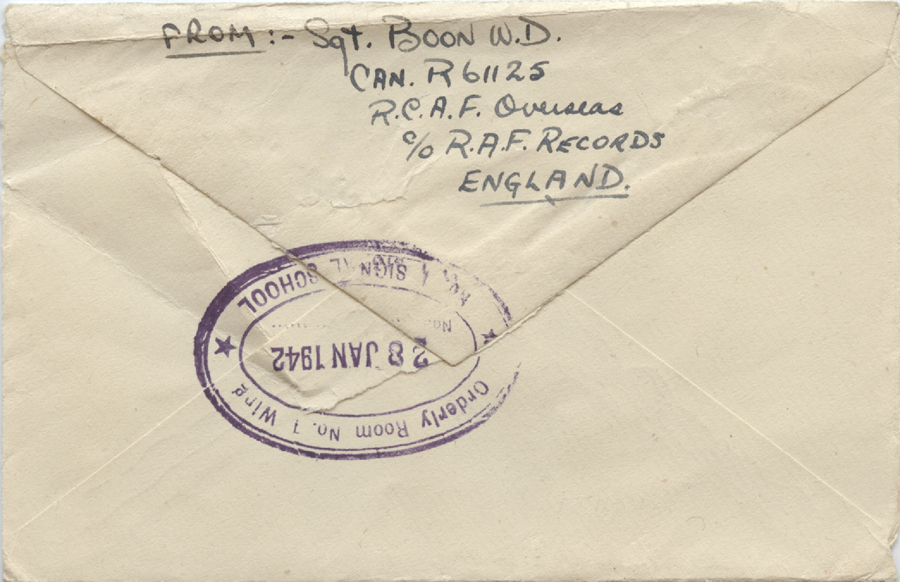 FROM :- Sgt. BOON W.D.
CAN. R61125
R.C.A.F. Overseas
c/o R.A.F. RECORDS
ENGLAND.
Orderly Room No. 1 Wing
28 JAN 1942
No.
SCHOOL